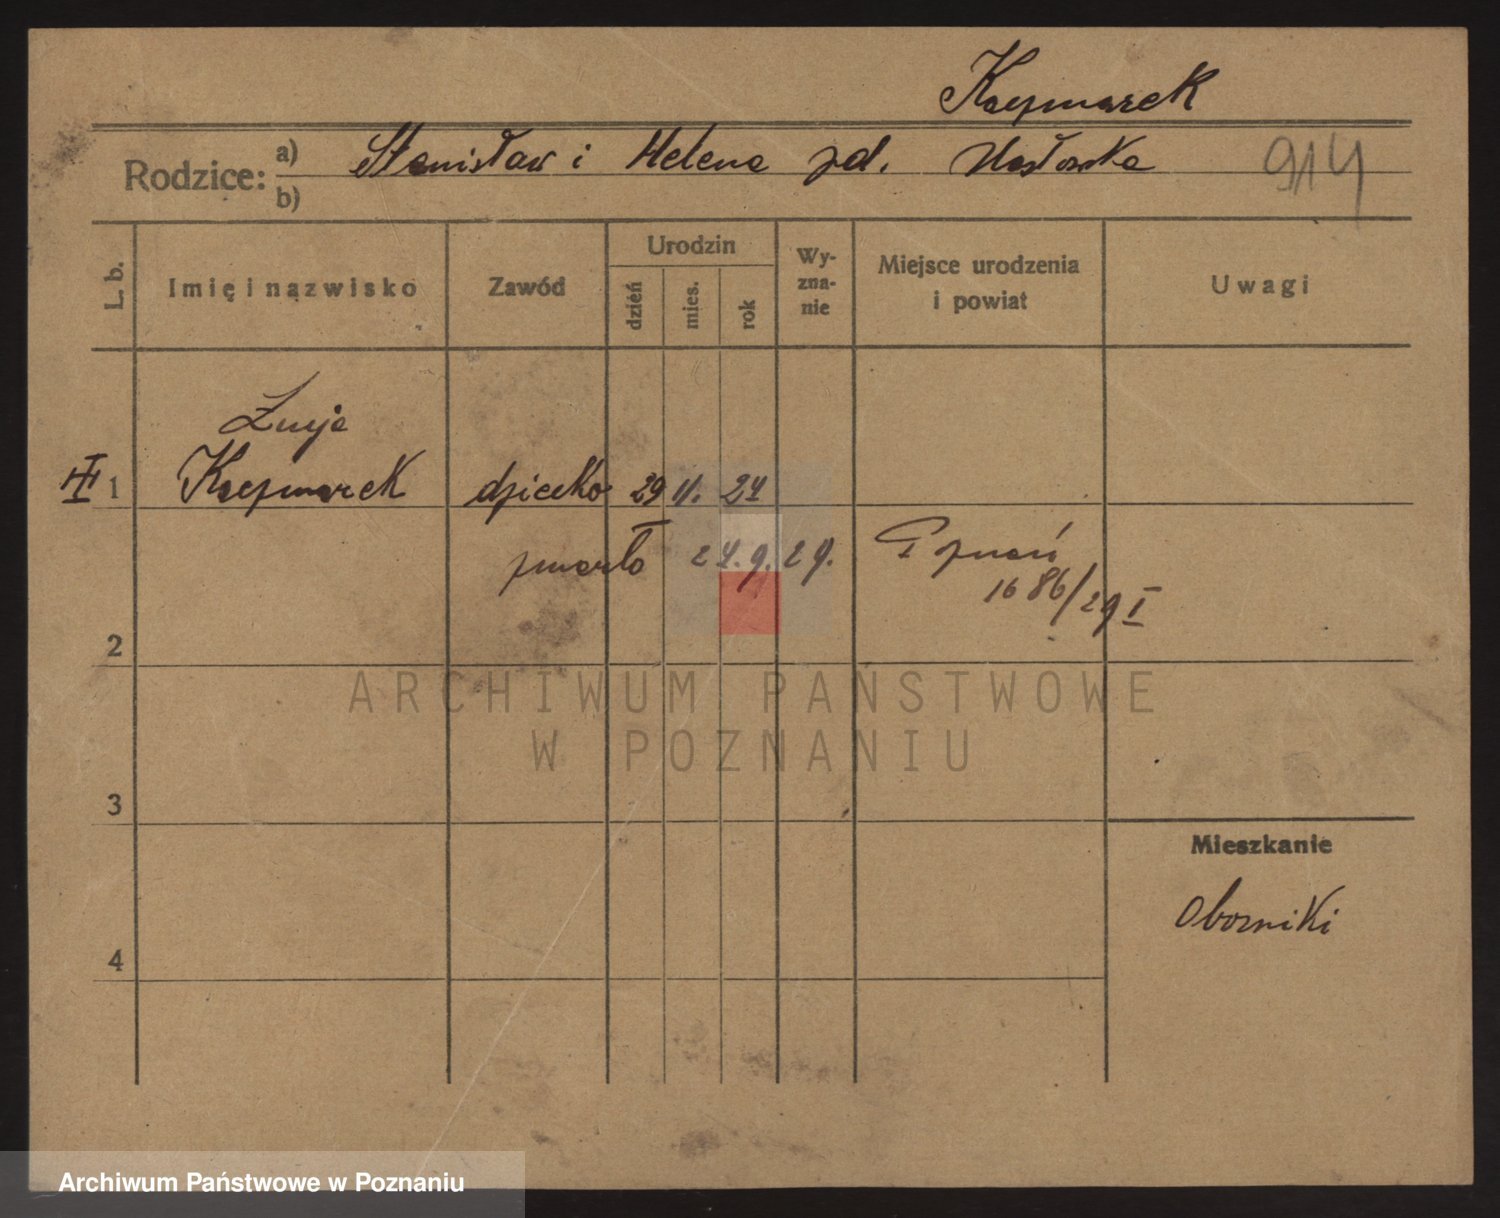 Kaczmarek
Rodzice: a) Stanisław i Helena zd.
b)
914
L. b.
Imię i nazwisko
Zawód
Urodzin
dzień
mies.
rok
Wy-
zna-
nie
Miejsce urodzenia
i powiat
Uwagi
Łucja
1 Kaczmarek dziecko 29 11. 24
zmarło 24.9.29. Poznań
1686/29 I
2
ARCHIWUM PAŃSTWOWE
W POZNANIU
3
Mieszkanie
Oborniki
4
Archiwum Państwowe w Poznaniu